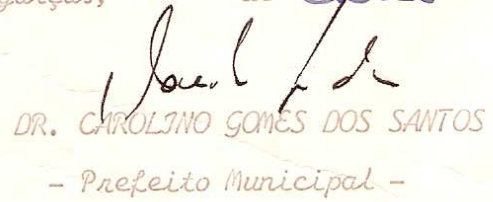 de
DR. CAROLINO GOMES DOS SANTOS
- Prefeito Municipal -